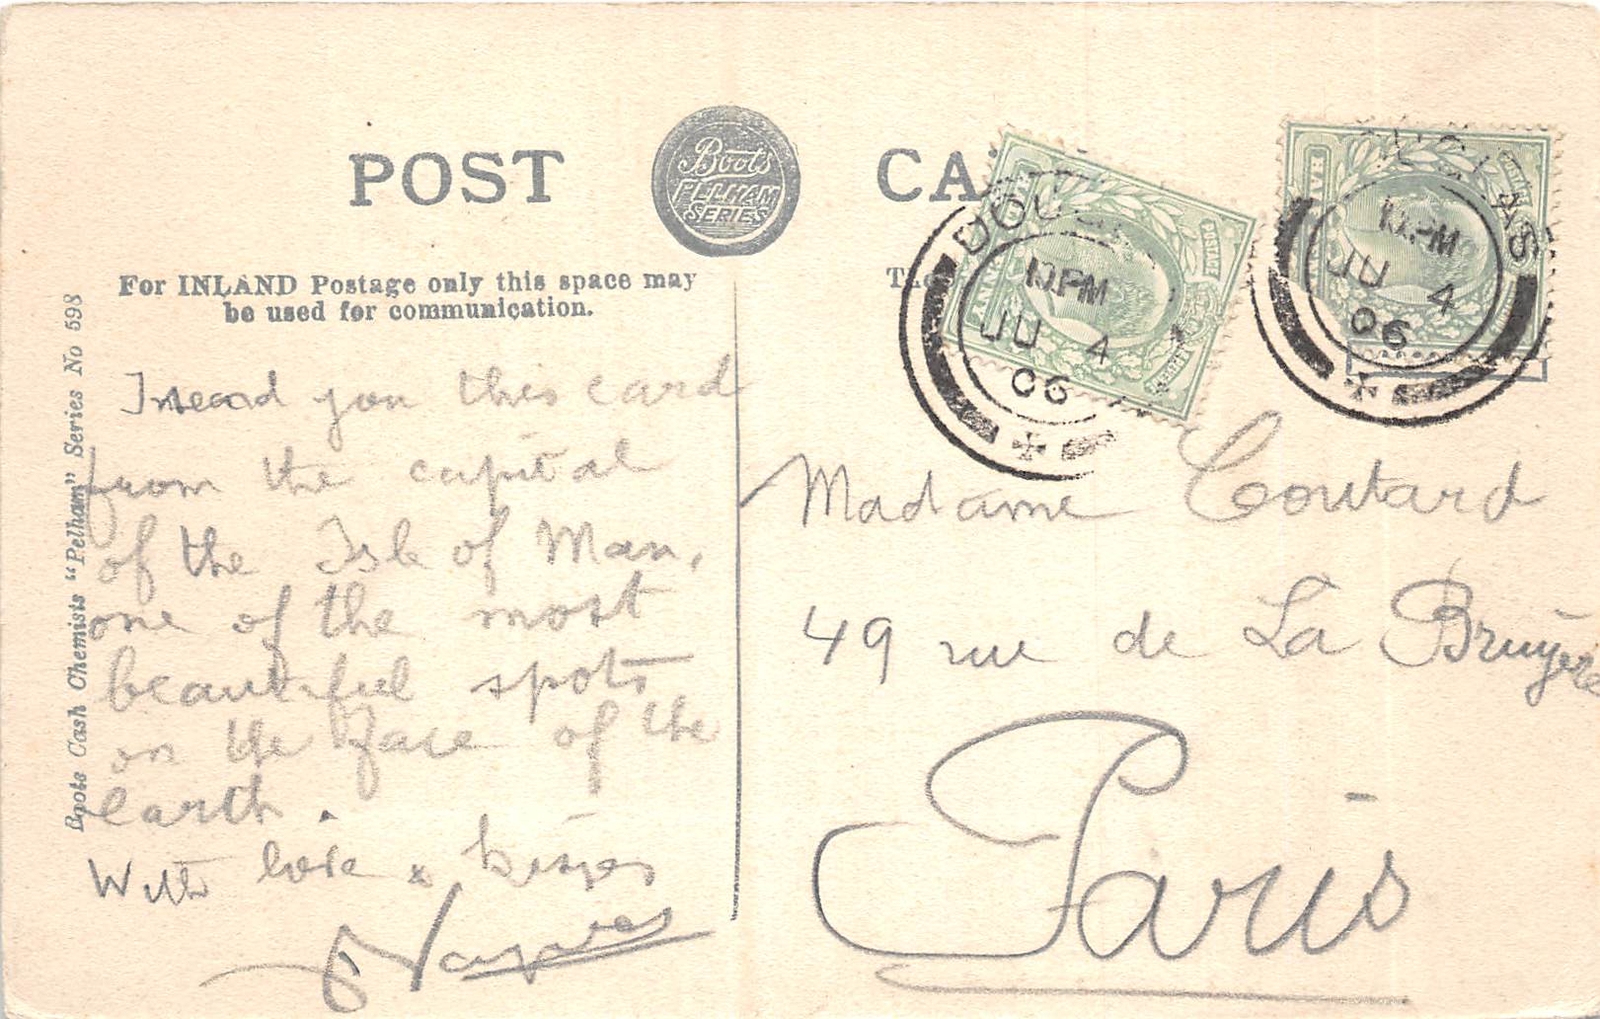 POST CA
Boots
PELHAM
SERIES
For INLAND Postage only this space may
be used for communication.
Boots Cash Chemists "Pelham" Series No 598
I send you this card
from the capital
of the Isle of Man,
one of the most
beautiful spots
on the face of the
earth.
With love & kisses
DOUGLAS
10.PM
JU 4
06
DOUGLAS
10.PM
JU 4
06
Madame Coutard
49 rue de La Bruyère
Paris